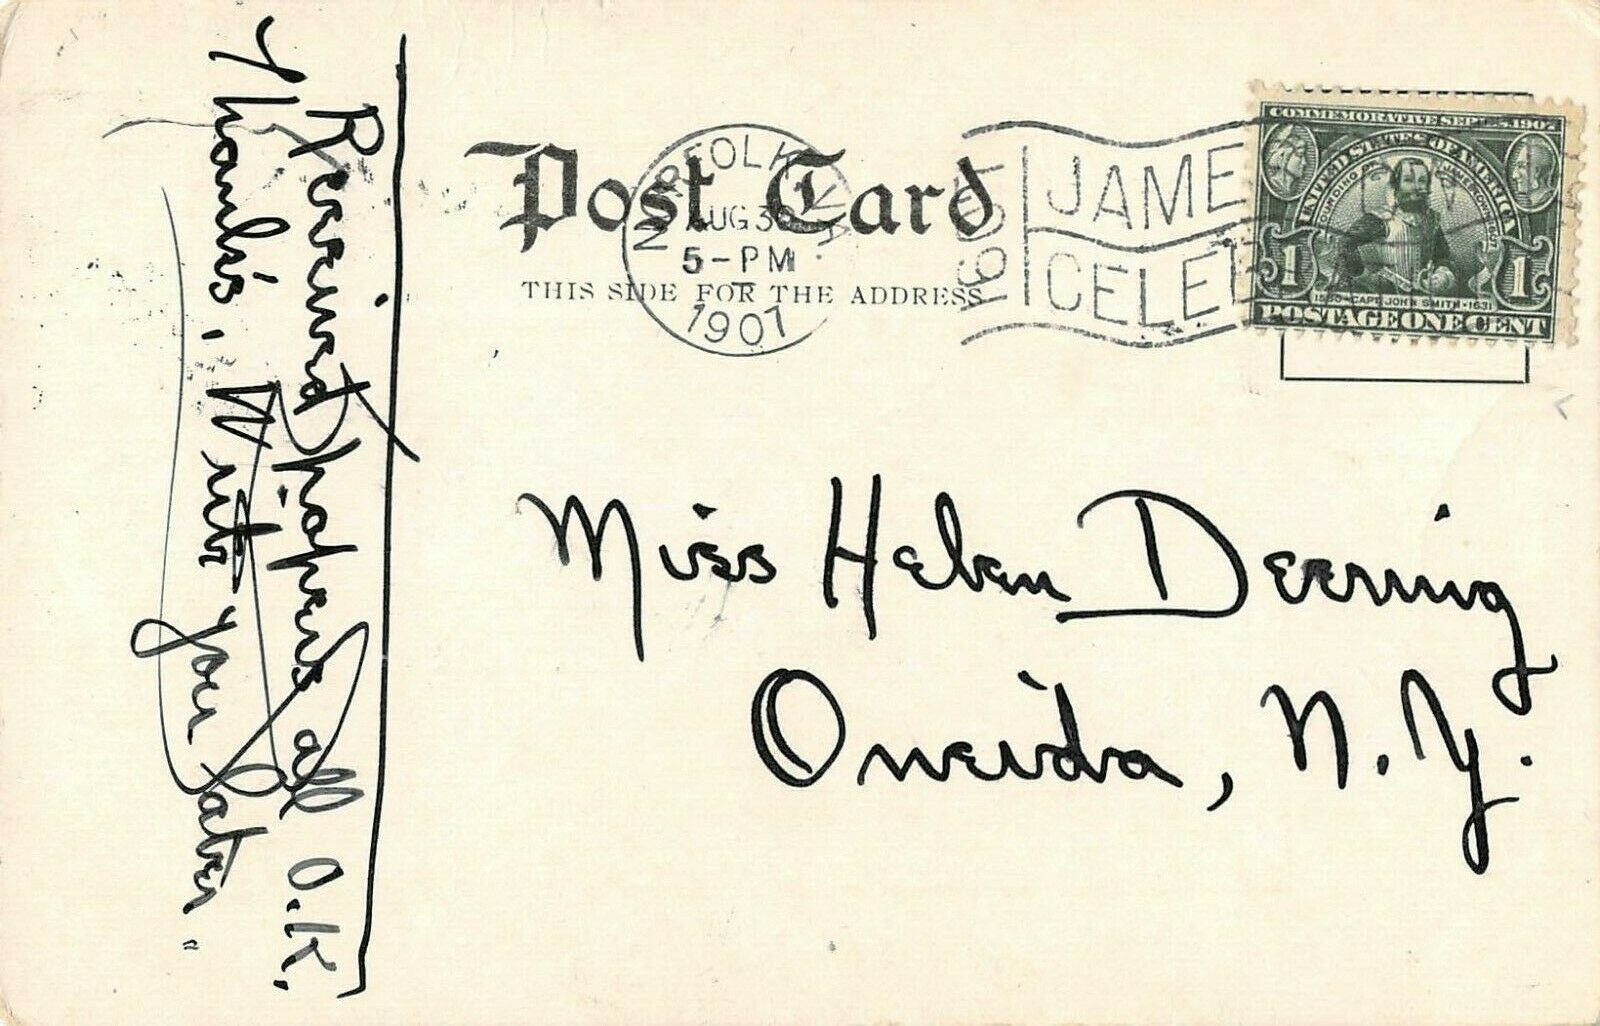 Post Card
THIS SIDE FOR THE ADDRESS
NORFOLK, VA.
AUG 30
5-PM
1907
1607
1907
JAME
CELE
COMMEMORATIVE SERIES, 1907
UNITED STATES OF AMERICA
FOUNDING OF JAMESTOWN 1607
1 1
1580-CAPT. JOHN SMITH-1631
POSTAGE ONE CENT
Miss Helen Deering
Oneida, N.Y.
Received papers all O.K.
Thanks. Write you later.